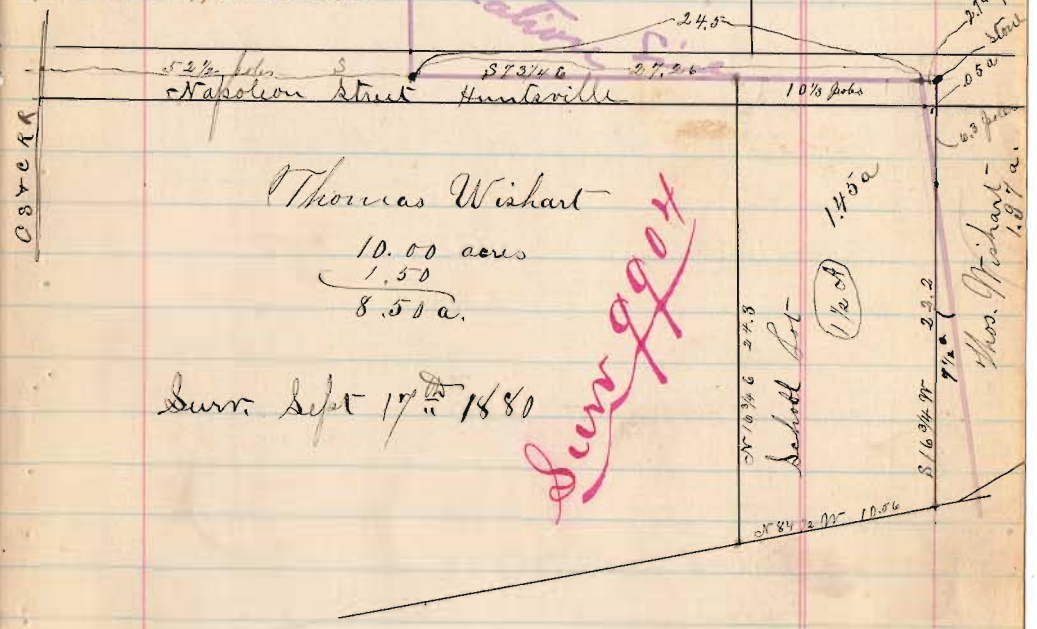 24.5
52 1/2 poles S
S 73 1/4 E 27.26
Napoleon Street Huntsville
10 1/3 poles
Stone
.05 a
6.3 poles
O S & C R R
Thomas Wishart
10.00 acres
1.50
8.50 a.
Surv. Sept 17th 1880
Surv 9904
N 16 3/4 E 24.3
School Lot
1.45 a
1 1/2 A
S 16 3/4 W 22.2
9 1/2 a
Thos. Wishart
1.97 a.
N 84 1/2 W 10.56